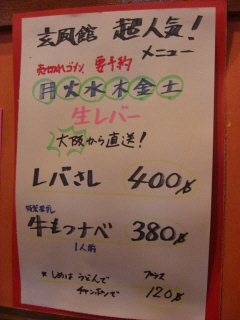 玄風館 超人気!
メニュー
売切れゴメン 要予約
月火水木金土
生レバー
大阪から直送!
レバさし 400円
牛もつナベ 380円
1人前
* しめは うどんで プラス
チャンポンで 120円